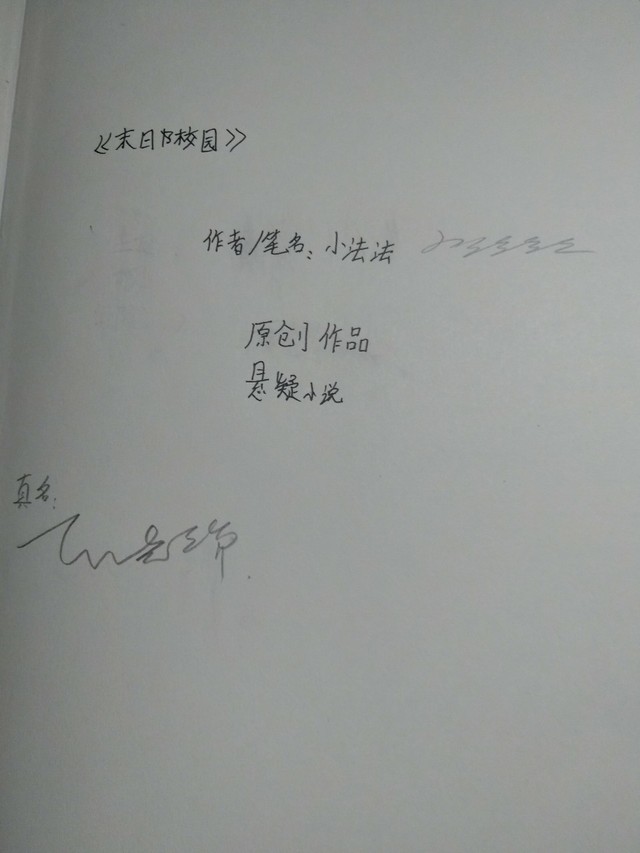 《末日的校园》
作者/笔名：小法法
原创作品
悬疑小说
真名：